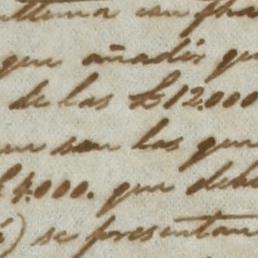 que añadir qu
de las £12.000
son las que
4.000. que deb
) se presentan